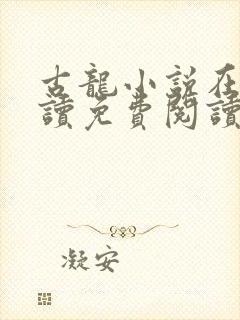 古龍小說在
讀免費閱讀
凝安